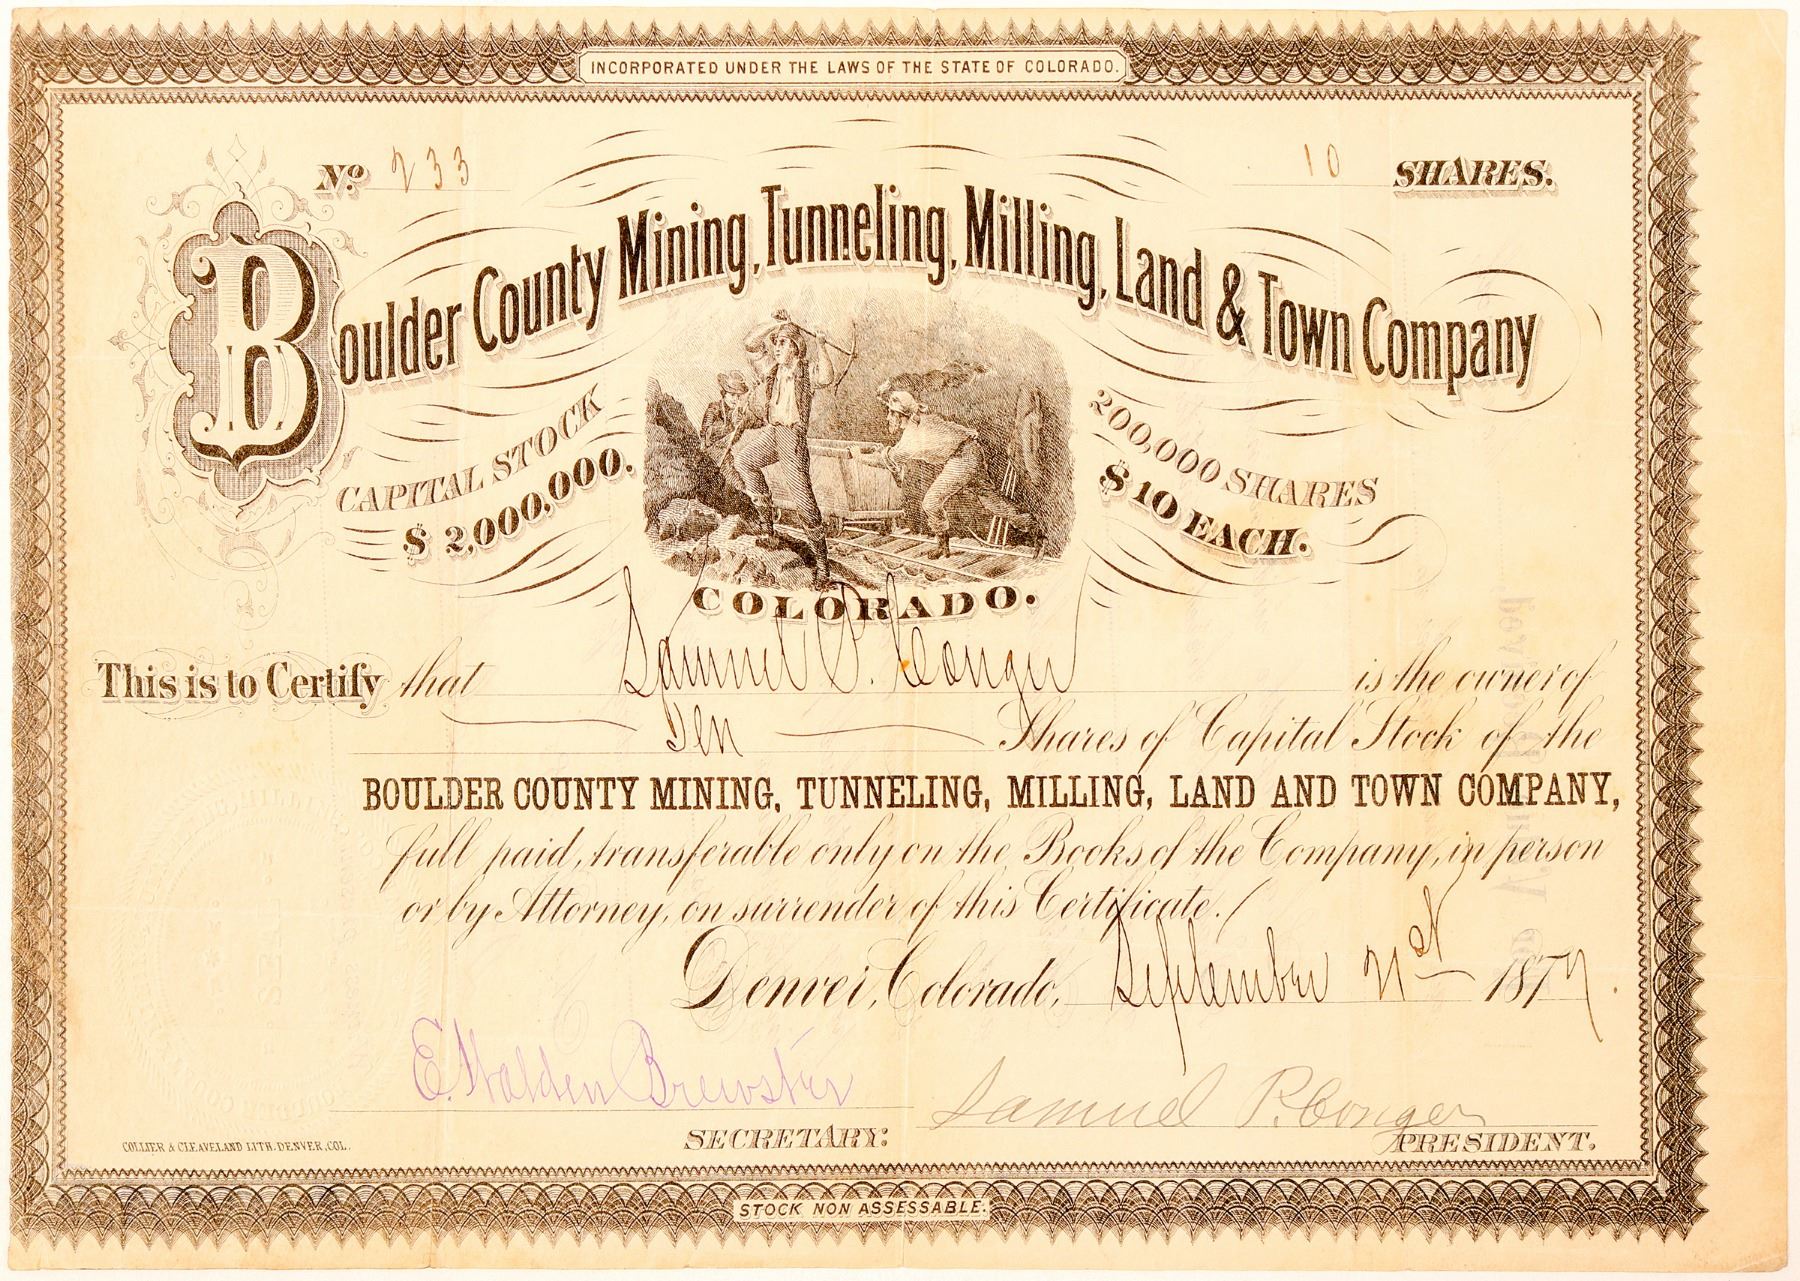 INCORPORATED UNDER THE LAWS OF THE STATE OF COLORADO.
No. 233
10 SHARES.
Boulder County Mining, Tunneling, Milling, Land & Town Company
CAPITAL STOCK
$2,000,000.
200,000 SHARES
$10 EACH.
COLORADO.
This is to Certify that Samuel P. Conger is the owner of
Ten Shares of Capital Stock of the
BOULDER COUNTY MINING, TUNNELING, MILLING, LAND AND TOWN COMPANY,
full paid, transferable only on the Books of the Company, in person
or by Attorney, on surrender of this Certificate.
Denver, Colorado, September 21st 1877.
E. Walden Brewster
SECRETARY.
Samuel P. Conger
PRESIDENT.
COLLIER & CLEAVELAND LITH. DENVER, COL.
STOCK NON ASSESSABLE.